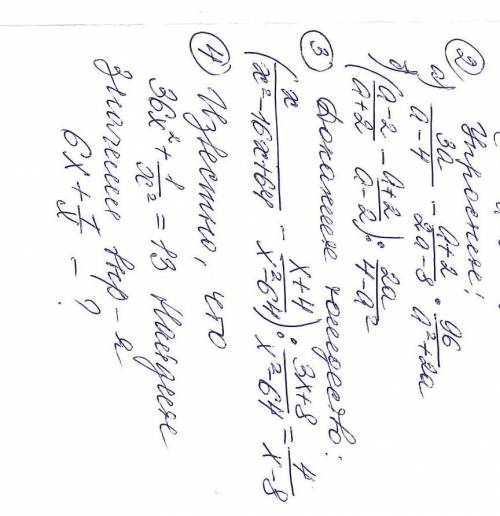 ② Упростите:
а) \frac{3a}{a-4} - \frac{a+2}{2a-8} \cdot \frac{96}{a^2+2a}
б) \left(\frac{a-2}{a+2} - \frac{a+2}{a-2}\right) : \frac{2a}{4-a^2}
③ Докажите тождество:
\left(\frac{x}{x^2-16x+64} - \frac{x+4}{x^2-64}\right) : \frac{3x+8}{x^2-64} = \frac{4}{x-8}
④ Известно, что
36x^2 + \frac{1}{x^2} = 13 Найдите
значения выр-я
6x + \frac{1}{x} - ?